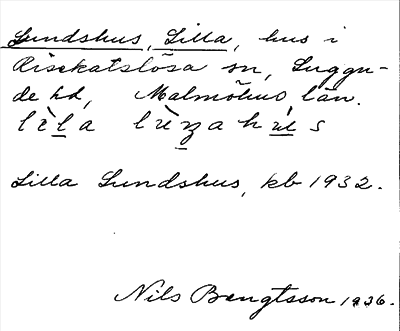 Lundshus, Lilla, hus i
Risekatslösa sn, Luggu-
de hd, Malmöhus län.
Lilla Lundshus, kb 1932.
Nils Bengtsson 1936.